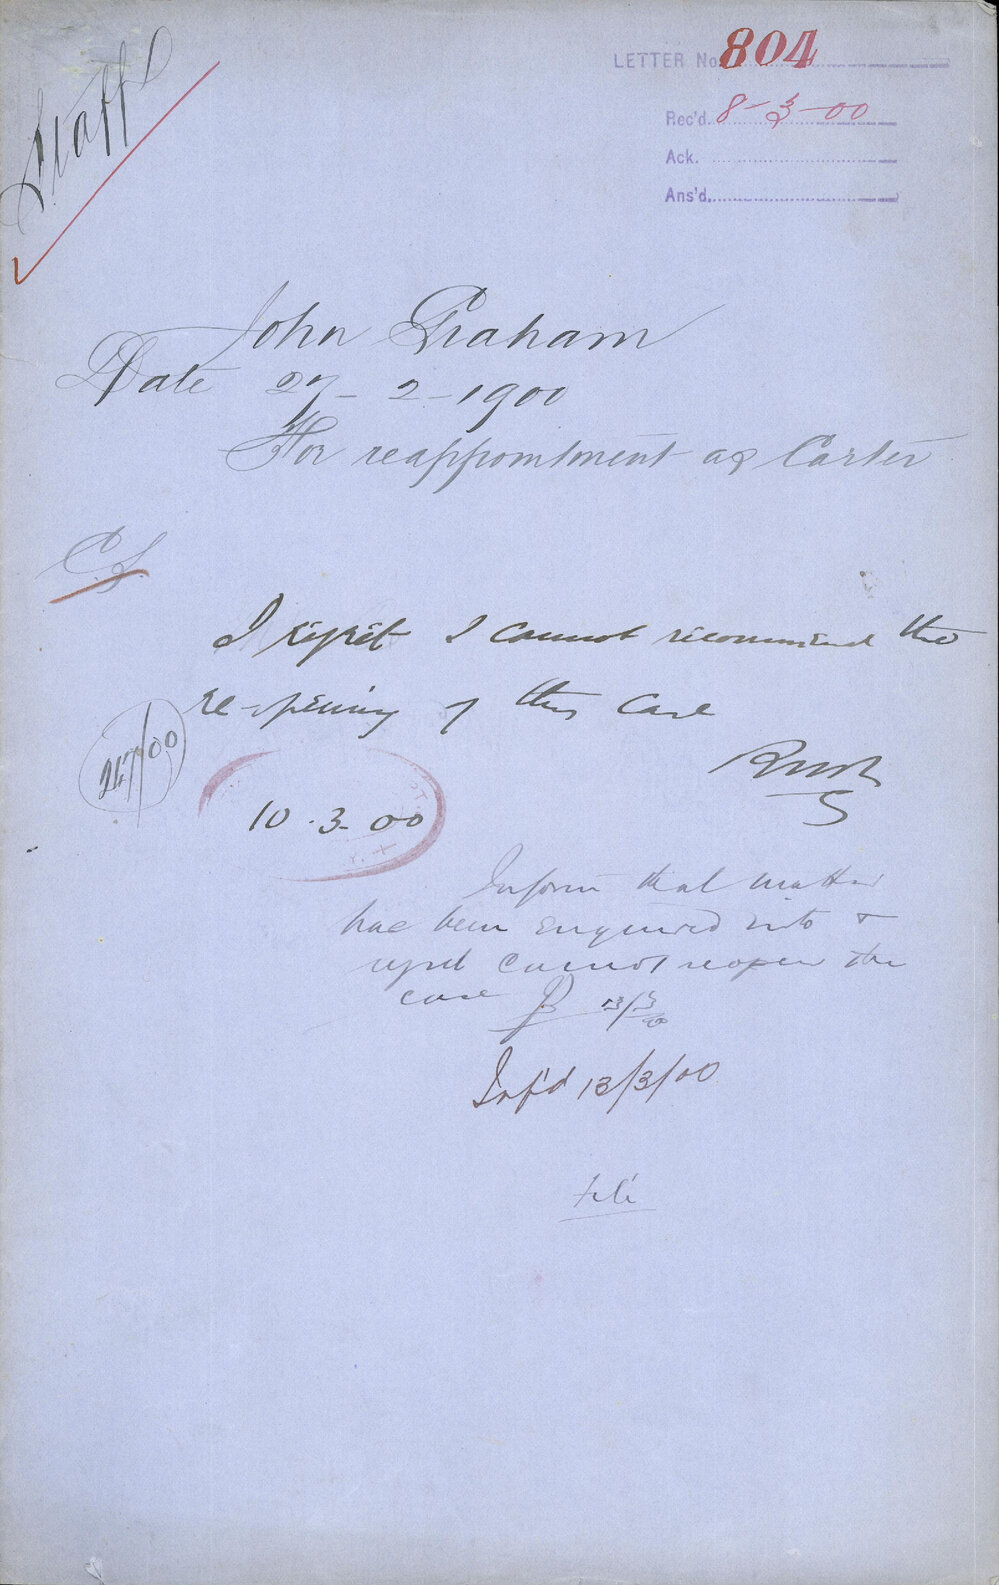 Staff
LETTER No. 804
Rec'd. 8-3-00
Ack.
Ans'd.
John Graham
Date 27-2-1900
For reappointment as Carter
C.S.
I regret I cannot recommend the
re-opening of this case
247/00
10.3.00
Inform that matter
has been enquired into &
regret cannot reopen the
case 13/3/00
Inf'd 13/3/00
File